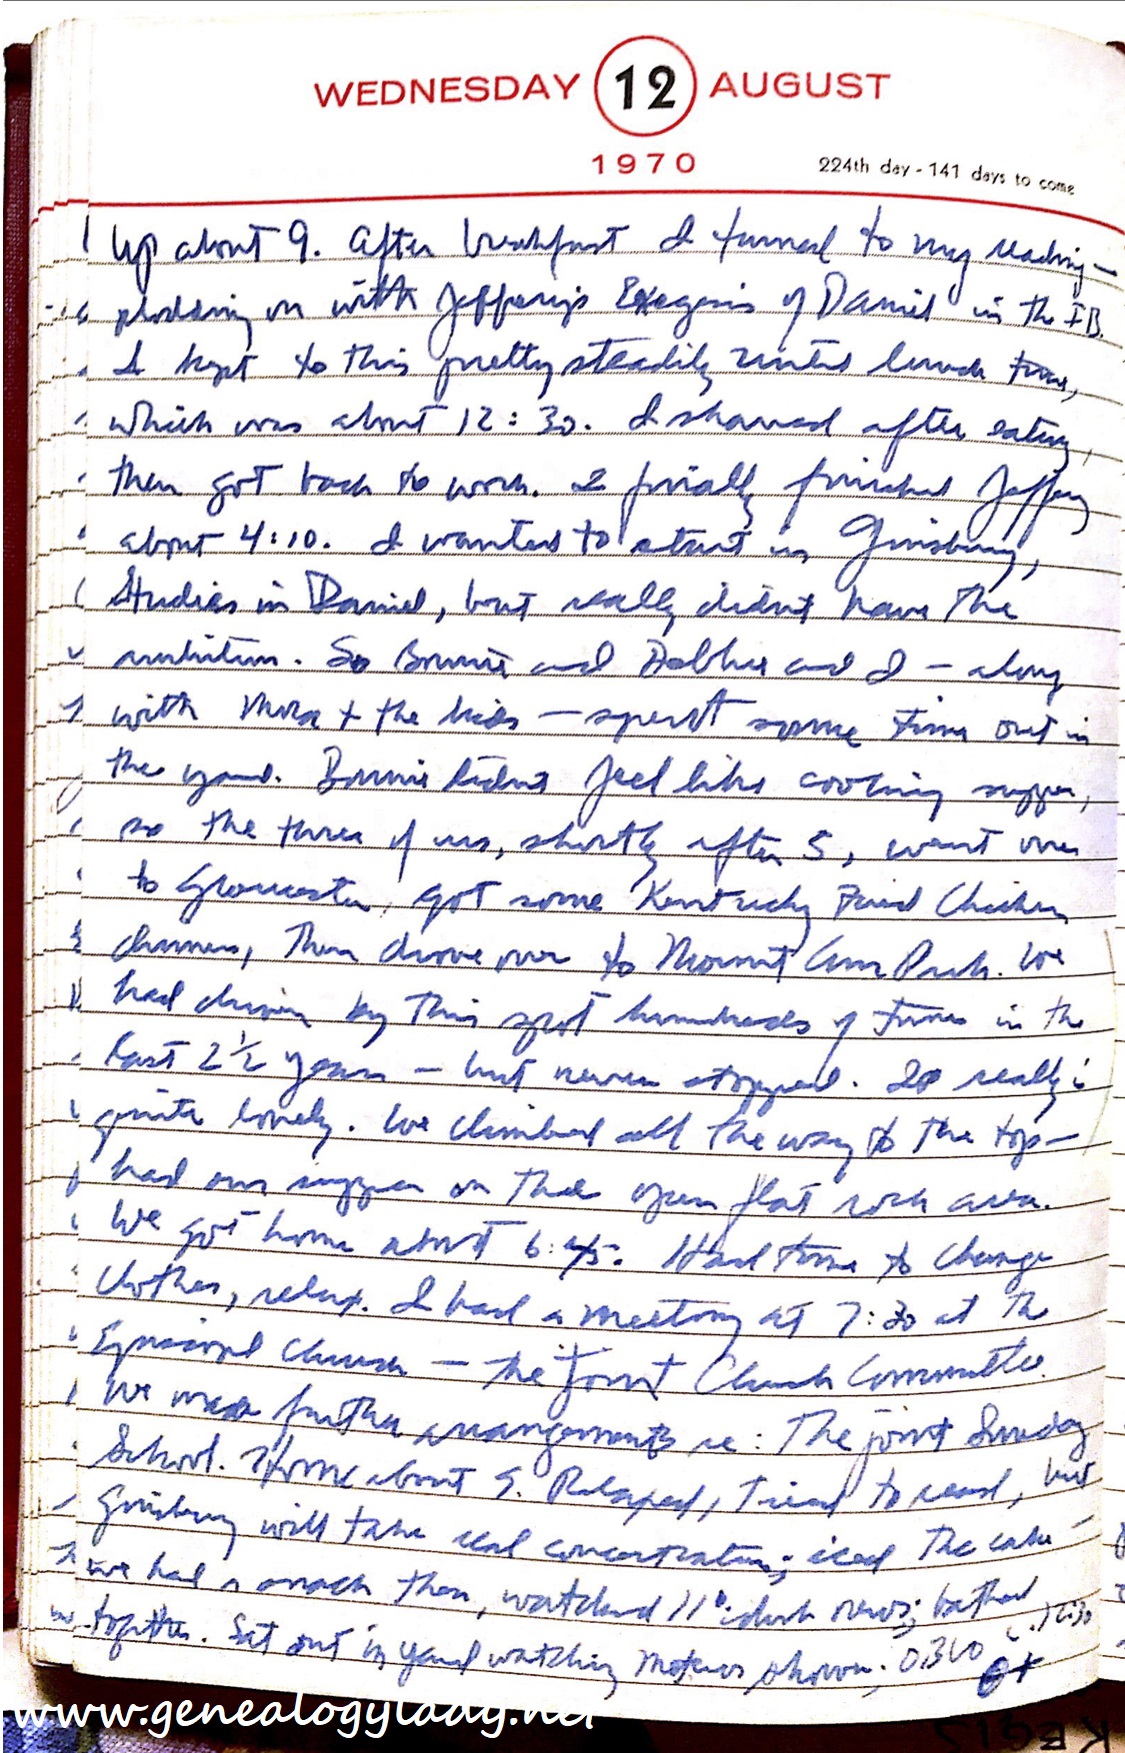 WEDNESDAY 12 AUGUST
1970
224th day - 141 days to come
Up about 9. After breakfast I turned to my reading —
plodding on with Jeffery's Exegesis of Daniel in the IB.
I kept to this pretty steadily until lunch time,
which was about 12:30. I shaved after eating,
then got back to work. I finally finished Jeffery
about 4:10. I wanted to start in Ginsburg,
Studies in Daniel, but really didn't have the
ambition. So Bonnie and Debbie and I — along
with Mora + the kids — spent some time out in
the yard. Bonnie didn't feel like cooking supper,
so the three of us, shortly after 5, went over
to Gloucester, got some Kentucky Fried Chicken
dinners, then drove over to Mount Ann Park. We
had driven by this spot hundreds of times in the
last 2 1/2 years — but never stopped. It really is
quite lovely. We climbed all the way to the top —
had our supper on the open flat rock area.
We got home about 6:45. Had time to change
clothes, relax. I had a meeting at 7:30 at the
Episcopal Church — the Joint Church Committee.
We made further arrangements re: The joint Sunday
School. Home about 9. Relaxed, tried to read, but
Ginsburg will take real concentration; iced the cake —
we had a snack then, watched 11 o'clock news; bathed
together. Sat out in yard watching meteor shower;
www.genealogylady.net